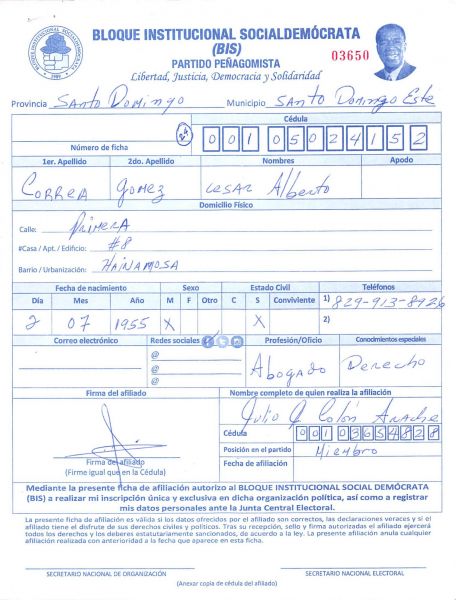 BLOQUE INSTITUCIONAL SOCIALDEMÓCRATA
(BIS)
PARTIDO PEÑAGOMISTA
03650
Libertad, Justicia, Democracia y Solidaridad
Provincia Santo Domingo Municipio Santo Domingo Este
Cédula
Número de ficha 24 001 0502415 2
1er. Apellido 2do. Apellido Nombres Apodo
Correa Gomez Cesar Alberto
Domicilio Físico
Calle: Primera
#Casa / Apt. / Edificio: #8
Barrio / Urbanización: Hainamosa
Fecha de nacimiento Sexo Estado Civil Teléfonos
Día Mes Año M F Otro C S Conviviente 1) 829-913-8926
2 07 1955 X X 2)
Correo electrónico Redes sociales Profesión/Oficio Conocimientos especiales
@
@ Abogado Derecho
@
Firma del afiliado Nombre completo de quien realiza la afiliación
Julio Colón Arache
Cédula 001 0365482 8
Posición en el partido Miembro
Firma del afiliado
(Firme igual que en la Cédula) Fecha de afiliación
Mediante la presente ficha de afiliación autorizo al BLOQUE INSTITUCIONAL SOCIAL DEMÓCRATA
(BIS) a realizar mi inscripción única y exclusiva en dicha organización política, así como a registrar
mis datos personales ante la Junta Central Electoral.
La presente ficha de afiliación es válida si los datos ofrecidos por el afiliado son correctos, las declaraciones veraces y si el
afiliado tiene el disfrute de sus derechos civiles y políticos. Tras su recepción, sello y firma autorizadas el afiliado ejercerá
todos los derechos y los deberes estatutariamente sancionados, de acuerdo a la ley. La presente afiliación anula cualquier
afiliación realizada con anterioridad a la fecha que aparece en esta ficha.
SECRETARIO NACIONAL DE ORGANIZACIÓN SECRETARIO NACIONAL ELECTORAL
(Anexar copia de cédula del afiliado)